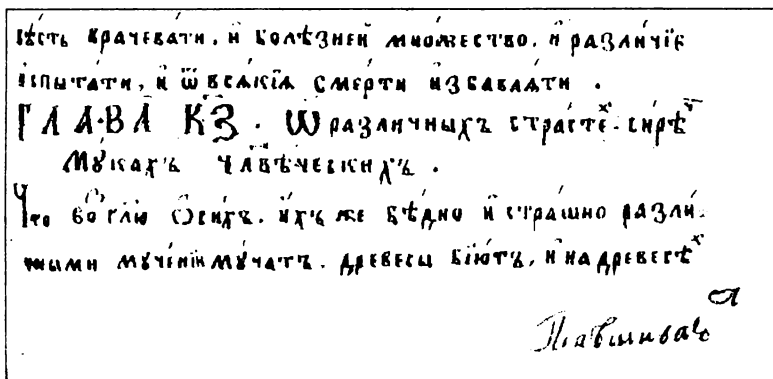 вѣсть врачевати. и болѣзней множество. и различїе
испытати, и ѿ всѧкїѧ смерти избавлѧти .
ГЛАВА КЗ . Ѡ различныхъ страстеⷯ. сирѣⷱ
мꙋкахъ чл҃вѣческихъ .
Что бо гл҃ю ѻ сихъ. ихъ же бѣдно и страшно разли
мꙋчатъ. древесы бїютъ, и на древесѣⷯ